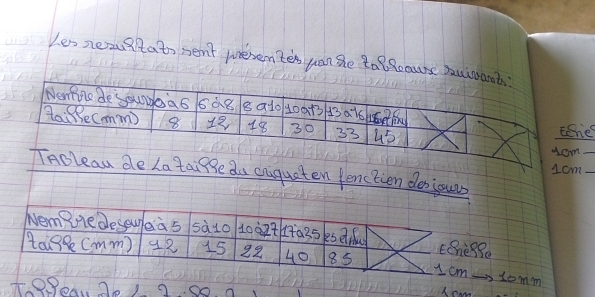 Les resultats sont présentés par le tableaux suivants:
Nombre de jours 0 à 5 5 à 8 8 à 10 10 à 13 13 à 15 et plus
Taille (mm) 8 12 18 30 33 45
Echelle
1cm
1cm
Tableau de La taille du criquet en fonction des jours
Nombre de jours 0 à 5 5 à 10 10 à 17 17 à 25 25 et plus
Taille (mm) 12 15 22 40 85
Echelle
1cm → 10mm
1cm
Tableau de